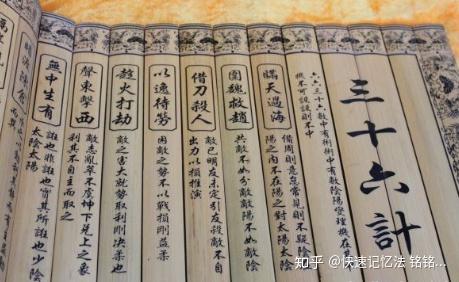 三十六計
六六三十六數中有術術中有數陰陽燮理機在
機不可設設則不中
瞞天過海
備周則意怠常見則不疑陰
陽之內不在陽之對太陽太陰
圍魏救趙
共敵不如分敵敵陽不如敵陰
借刀殺人
敵已明友未定引友殺敵不自
出力以損推演
以逸待勞
困敵之勢不以戰損剛益柔
趁火打劫
敵之害大就勢取利剛決柔也
聲東擊西
敵志亂萃不虞坤下兌上之象
利其不自主而取之
無中生有
誑也非誑也實其所誑也少陰
太陰太陽
知乎 @快速记忆法 铭铭...